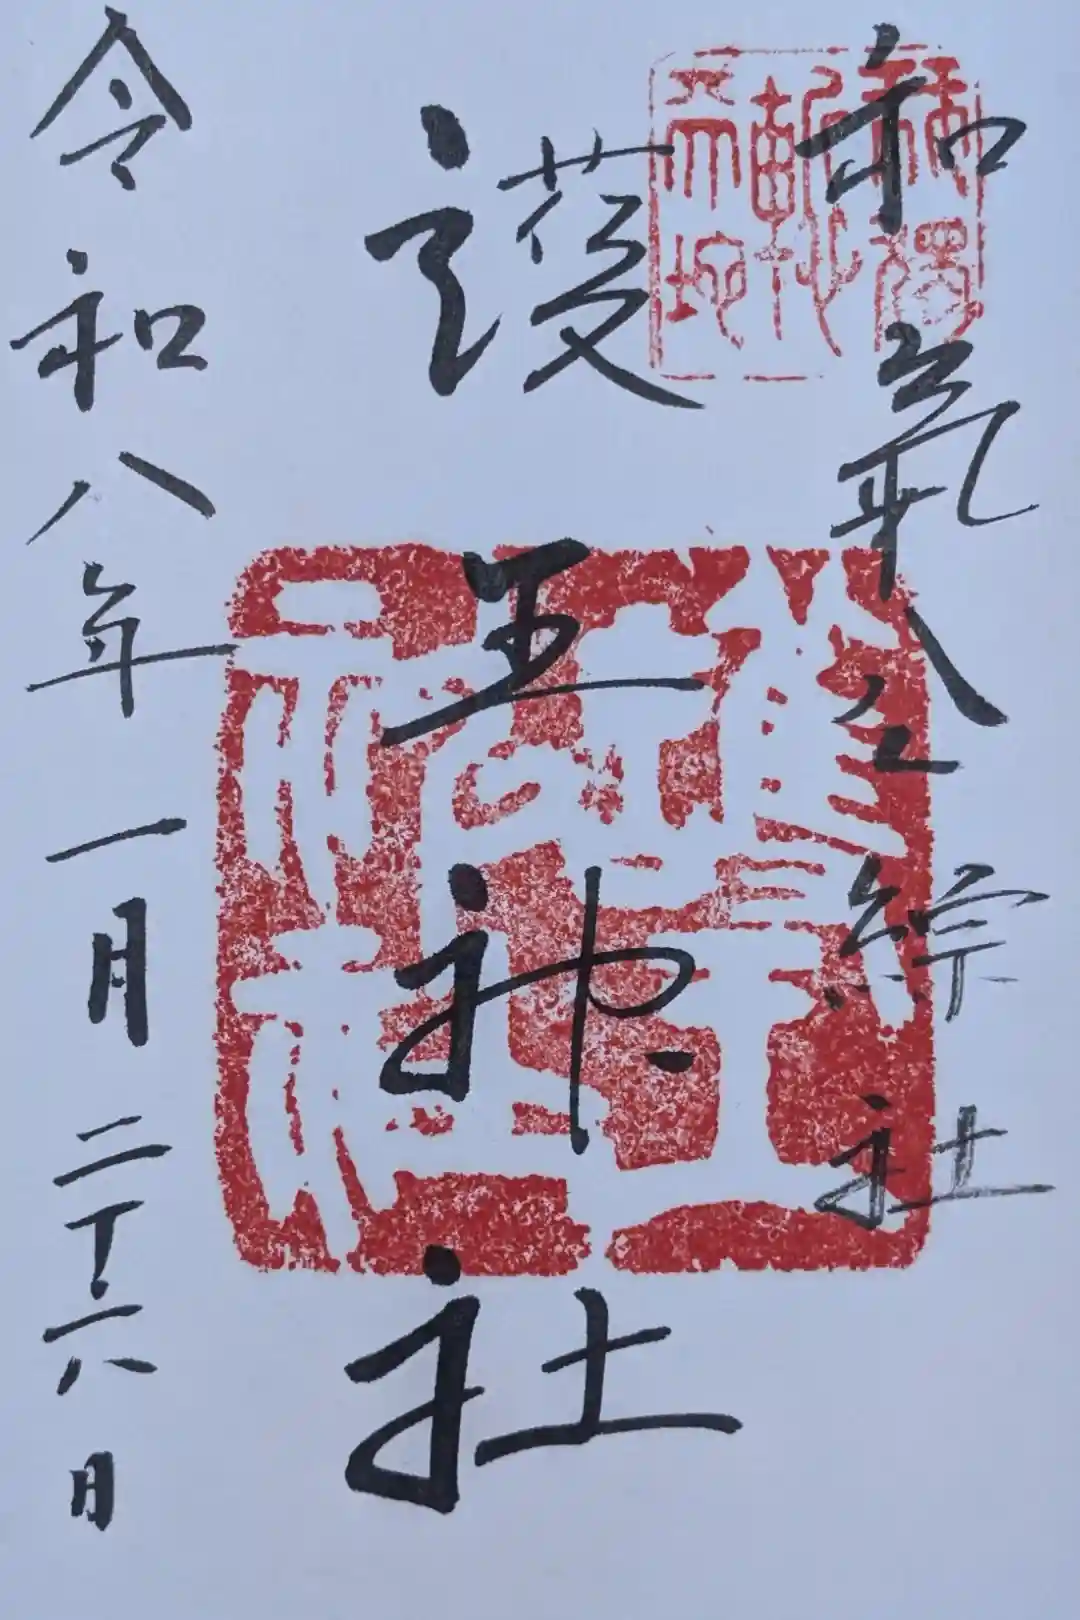 和氣公綜社
護王神社
令和八年一月二十六日